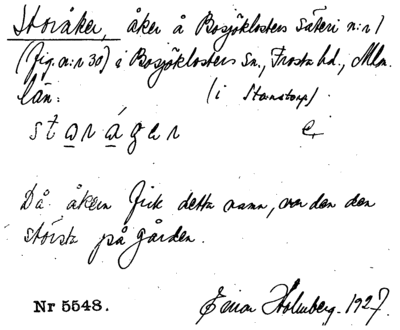 Storåker, åker å Bosjöklosters säteri n:r 1
(fig. n:r 30) i Bosjöklosters sn., Frosta hd., Mlm.
län. (i Stanstorp).
storåger e.
Då åkern fick detta namn, var den den
största på gården.
Nr 5548. Einar Holmberg. 1927.